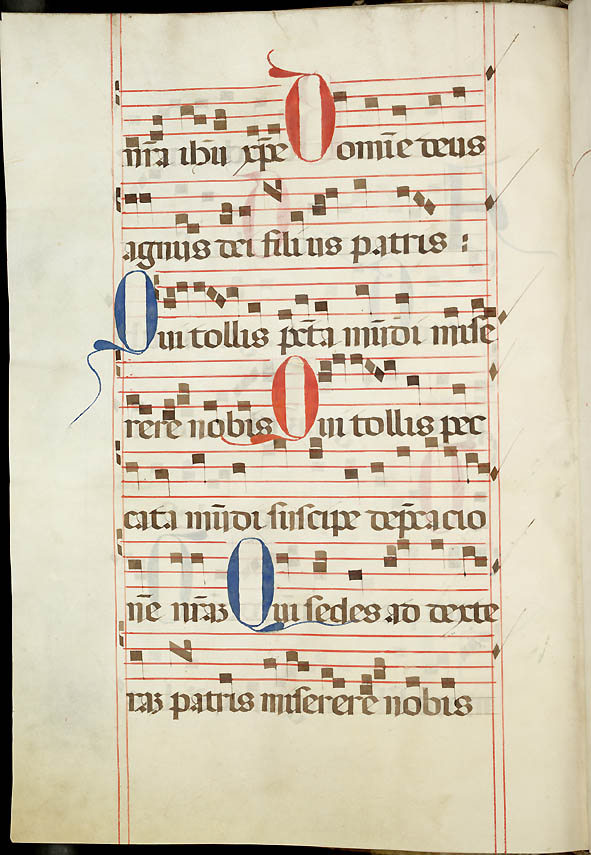 nr̄a ihū xp̄e Domīe deus
agnus dei filius patris :
Qui tollis pc̄ta mūdi mise
rere nobis Qui tollis pec
cata mūdi suscipe dep̄cacio
nē nr̄aꝫ Qui sedes ad dexte
raꝫ patris miserere nobis